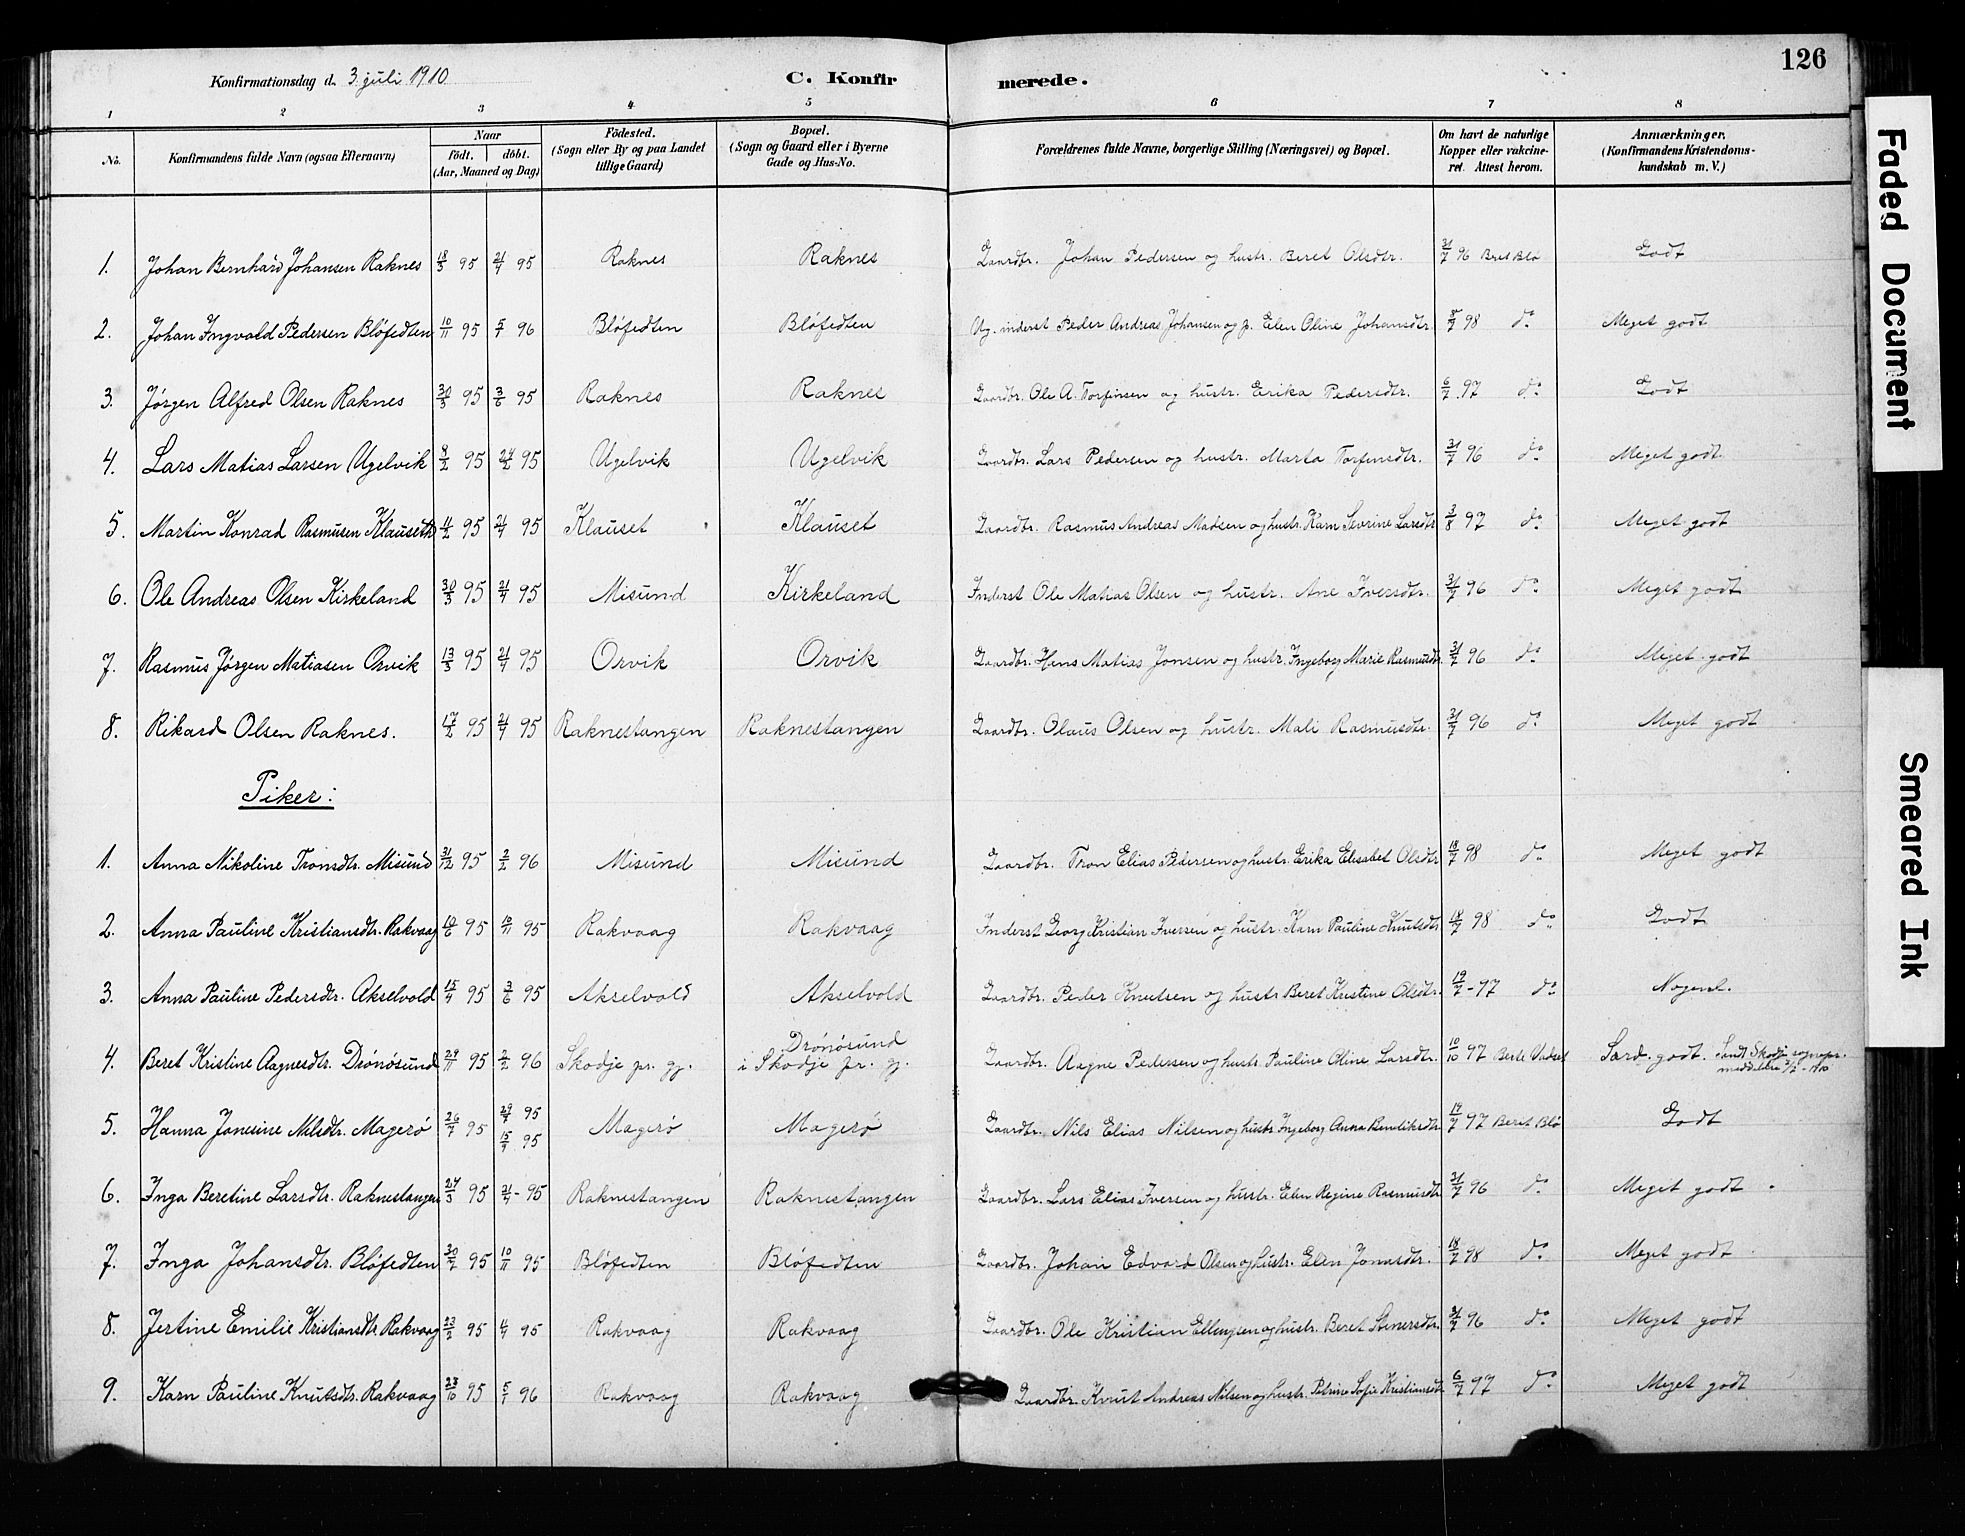 126
Konfirmationsdag d. 3. juli 1910 C. Konfirmerede.
1 2 3 4 5 6 7 8
No. Konfirmandens fulde Navn (ogsaa Efternavn) Naar födt. döbt. (Aar, Maaned og Dag) Födested. (Sogn eller By og paa Landet tillige Gaard) Bopæl. (Sogn og Gaard eller i Byerne Gade og Hus-No. Forældrenes fulde Navne, borgerlige Stilling (Næringsvei) og Bopæl. Om havt de naturlige Kopper eller vakcineret. Attest herom. Anmærkninger. (Konfirmandens Kristendomskundskab m. V.)
1. Johan Bernhard Johansen Raknes 18/3 95 21/4 95 Raknes Raknes Gaardbr. Johan Pedersen og hustr. Beret Olsdtr. 31/7 96 Bret Blø Godt
2. Johan Ingvald Pedersen Bløfedten 10/11 95 5/7 96 Bløfedten Bløfedten Ug. inderst Peder Andreas Johansen og p. Elen Oline Johansdtr. 8/7 98 do. Meget godt
3. Jørgen Alfred Olsen Raknes 30/3 95 3/6 95 Raknes Raknes Gaardbr. Ole A. Torfinsen og hustr. Erika Pedersdtr. 6/7 97 do. Godt
4. Lars Matias Larsen Ugelvik 8/2 95 24/2 95 Ugelvik Ugelvik Gaardbr. Lars Pedersen og hustr. Marta Torfinsdtr. 31/7 96 do. Meget godt
5. Martin Konrad Rasmusen Klauseth 4/2 95 21/4 95 Klauset Klauset Gaardbr. Rasmus Andreas Madsen og hustr. Karn Sevrine Larsdtr 3/8 97 do. Meget godt
6. Ole Andreas Olsen Kirkeland 30/3 95 21/4 95 Misund Kirkeland Inderst Ole Matias Olsen og hustr. Ane Iversdtr. 31/7 96 do. Meget godt
7. Rasmus Jørgen Matiasen Orvik 13/3 95 21/4 95 Orvik Orvik Gaardbr. Hans Matias Jonsen og hustr. Ingeborg Marie Rasmusdtr. 31/7 96 do. Meget godt
8. Rikard Olsen Raknes. 17/2 95 21/4 95 Raknestangen Raknestangen Gaardbr. Olaus Olsen og hustr. Mali Rasmusdtr. 31/7 96 do. Meget godt
Piker:
1. Anna Nikoline Tronsdtr. Misund 31/12 95 2/2 96 Misund Misund Gaardbr. Tron Elias Pedersen og hustr. Erika Elisabet Olsdtr 18/7 98 do. Meget godt
2. Anna Pauline Kristiansdtr. Rakvaag 10/6 95 10/11 95 Rakvaag Rakvaag Inderst Georg Kristian Iversen og hustr. Karn Pauline Knutsdtr 18/7 98 do. Godt
3. Anna Pauline Pedersdtr. Akselvold 15/4 95 3/6 95 Akselvold Akselvold Gaardbr. Peder Knutsen og hustr Beret Kristine Olsdtr. 19/7 - 97 do. Nogenl.
4. Beret Kristine Aagnesdtr. Drønøsund 29/11 95 2/2 96 Skodje pr. gj. Drønøsund i Skodje pr. gj. Gaardbr. Aagne Pedersen og hustr Pauline Oline Larsdtr. 10/10 97 Berte Vadset Særd. godt. Sendt Skodje sognepr. meddelelse 7/7 - 1910
5. Hanna Jonesine Nilsdtr. Magerø 26/7 95 29/7 95 15/9 95 Magerø Magerø Gaardbr. Nils Elias Nilsen og hustr Ingeborg Anna Bendiksdtr 19/7 97 Berit Blø Godt
6. Inga Beretine Larsdtr. Raknestangen 24/3 95 21/4 - 95 Raknestangen Raknestangen Gaardbr. Lars Elias Iversen og hustr. Elen Regine Rasmusdtr 31/7 96 do. Meget godt
7. Inga Johansdtr. Bløfedten 30/7 95 10/11 95 Bløfedten Bløfedten Gaardbr. Johan Edvard Olsen og hustr. Elen Jonasdtr. 18/7 98 do. Meget godt
8. Jertine Emilie Kristiansdtr. Rakvaag 23/2 95 4/4 95 Rakvaag Rakvaag Gaardbr. Ole Kristian Ellingsen og hustr. Beret Stenersdtr. 31/7 96 do. Meget godt
9. Karn Pauline Knutsdtr. Rakvaag 23/10 95 5/1 96 Rakvaag Rakvaag Gaardbr. Knut Andreas Nilsen og hustr. Petrine Sofie Kristiansdtr 6/7 97 do. Meget godt
Faded Document
Smeared Ink